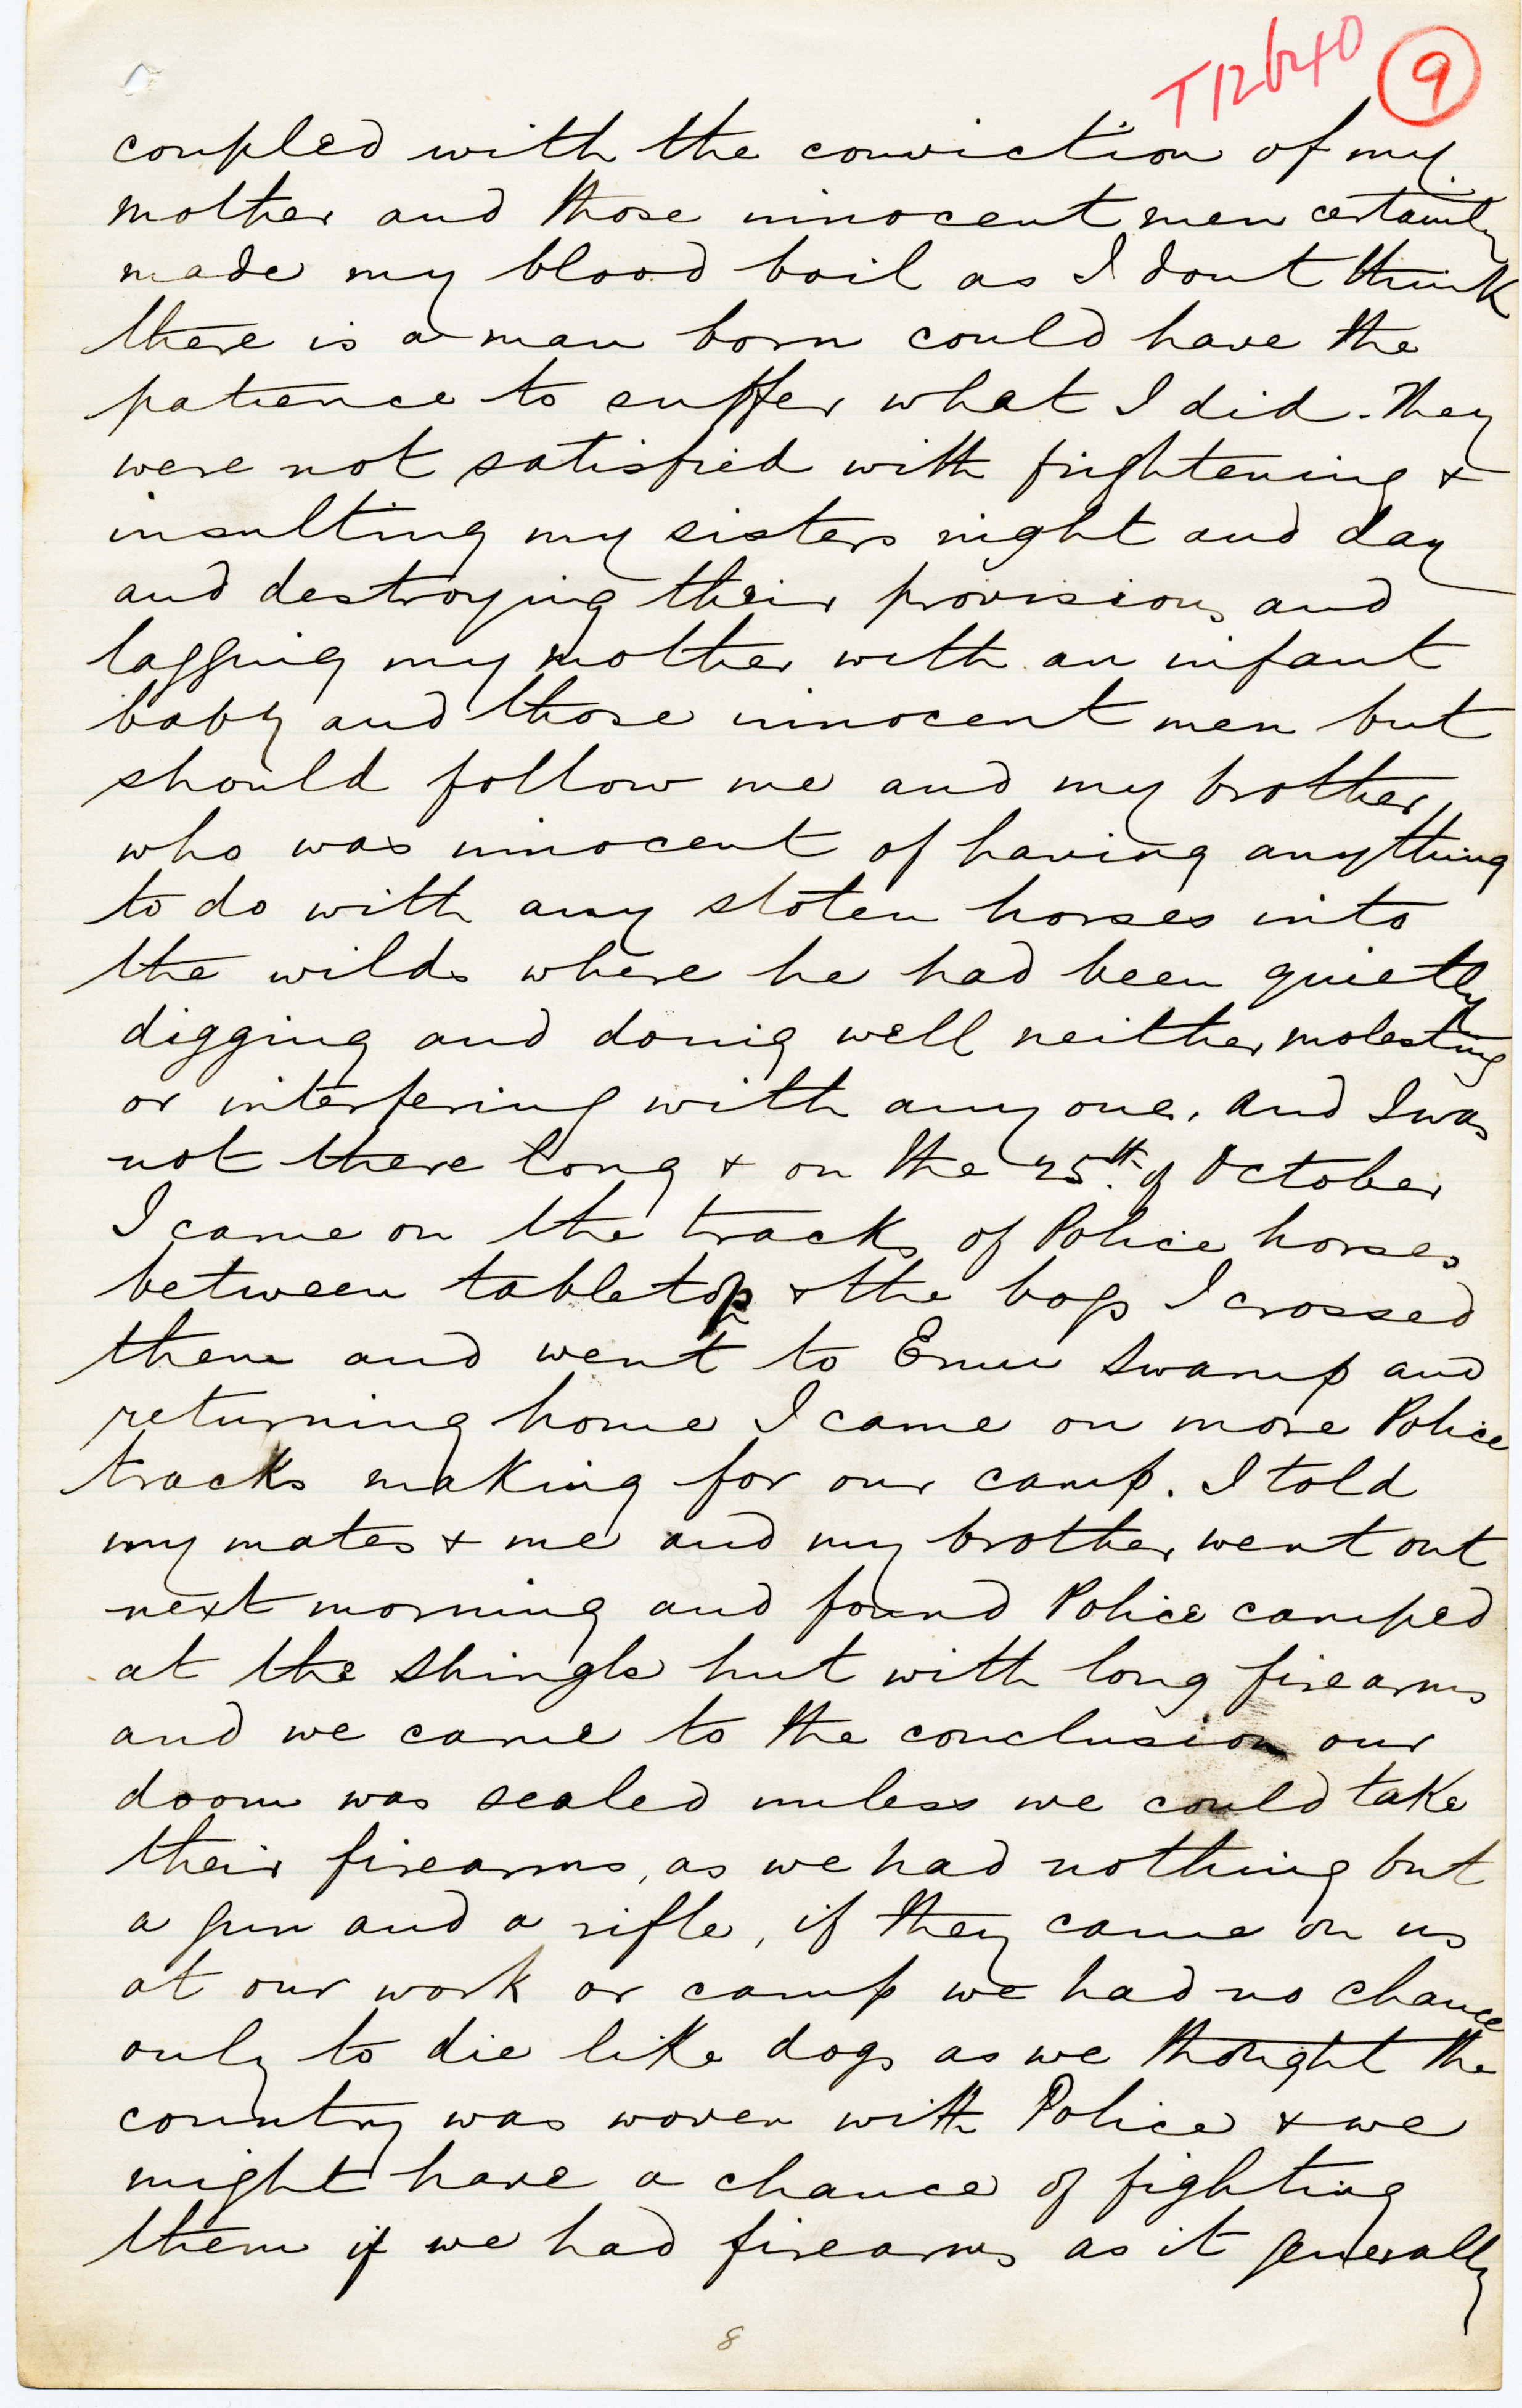 T12640 9
coupled with the conviction of my
mother and those innocent men certainly
made my blood boil as I dont think
there is a man born could have the
patience to suffer what I did. They
were not satisfied with frightening &
insulting my sisters night and day
and destroying their provisions and
lagging my mother with an infant
baby and those innocent men but
should follow me and my brother,
who was innocent of having anything
to do with any stolen horses into
the wilds where he had been quietly
digging and doing well neither molesting
or interfering with any one. and I was
not there long & on the 25th. of October
I came on the tracks of Police horses
between tabletop & the bogs I crossed
them and went to Emu Swamp and
returning home I came on more Police
tracks making for our camp. I told
my mates & me and my brother went out
next morning and found Police camped
at the Shingle hut with long firearms
and we came to the conclusion our
doom was sealed unless we could take
their firearms, as we had nothing but
a gun and a rifle, if they came on us
at our work or camp we had no chance
only to die like dogs as we thought the
country was woven with Police & we
might have a chance of fighting
them if we had firearms as it generally
8